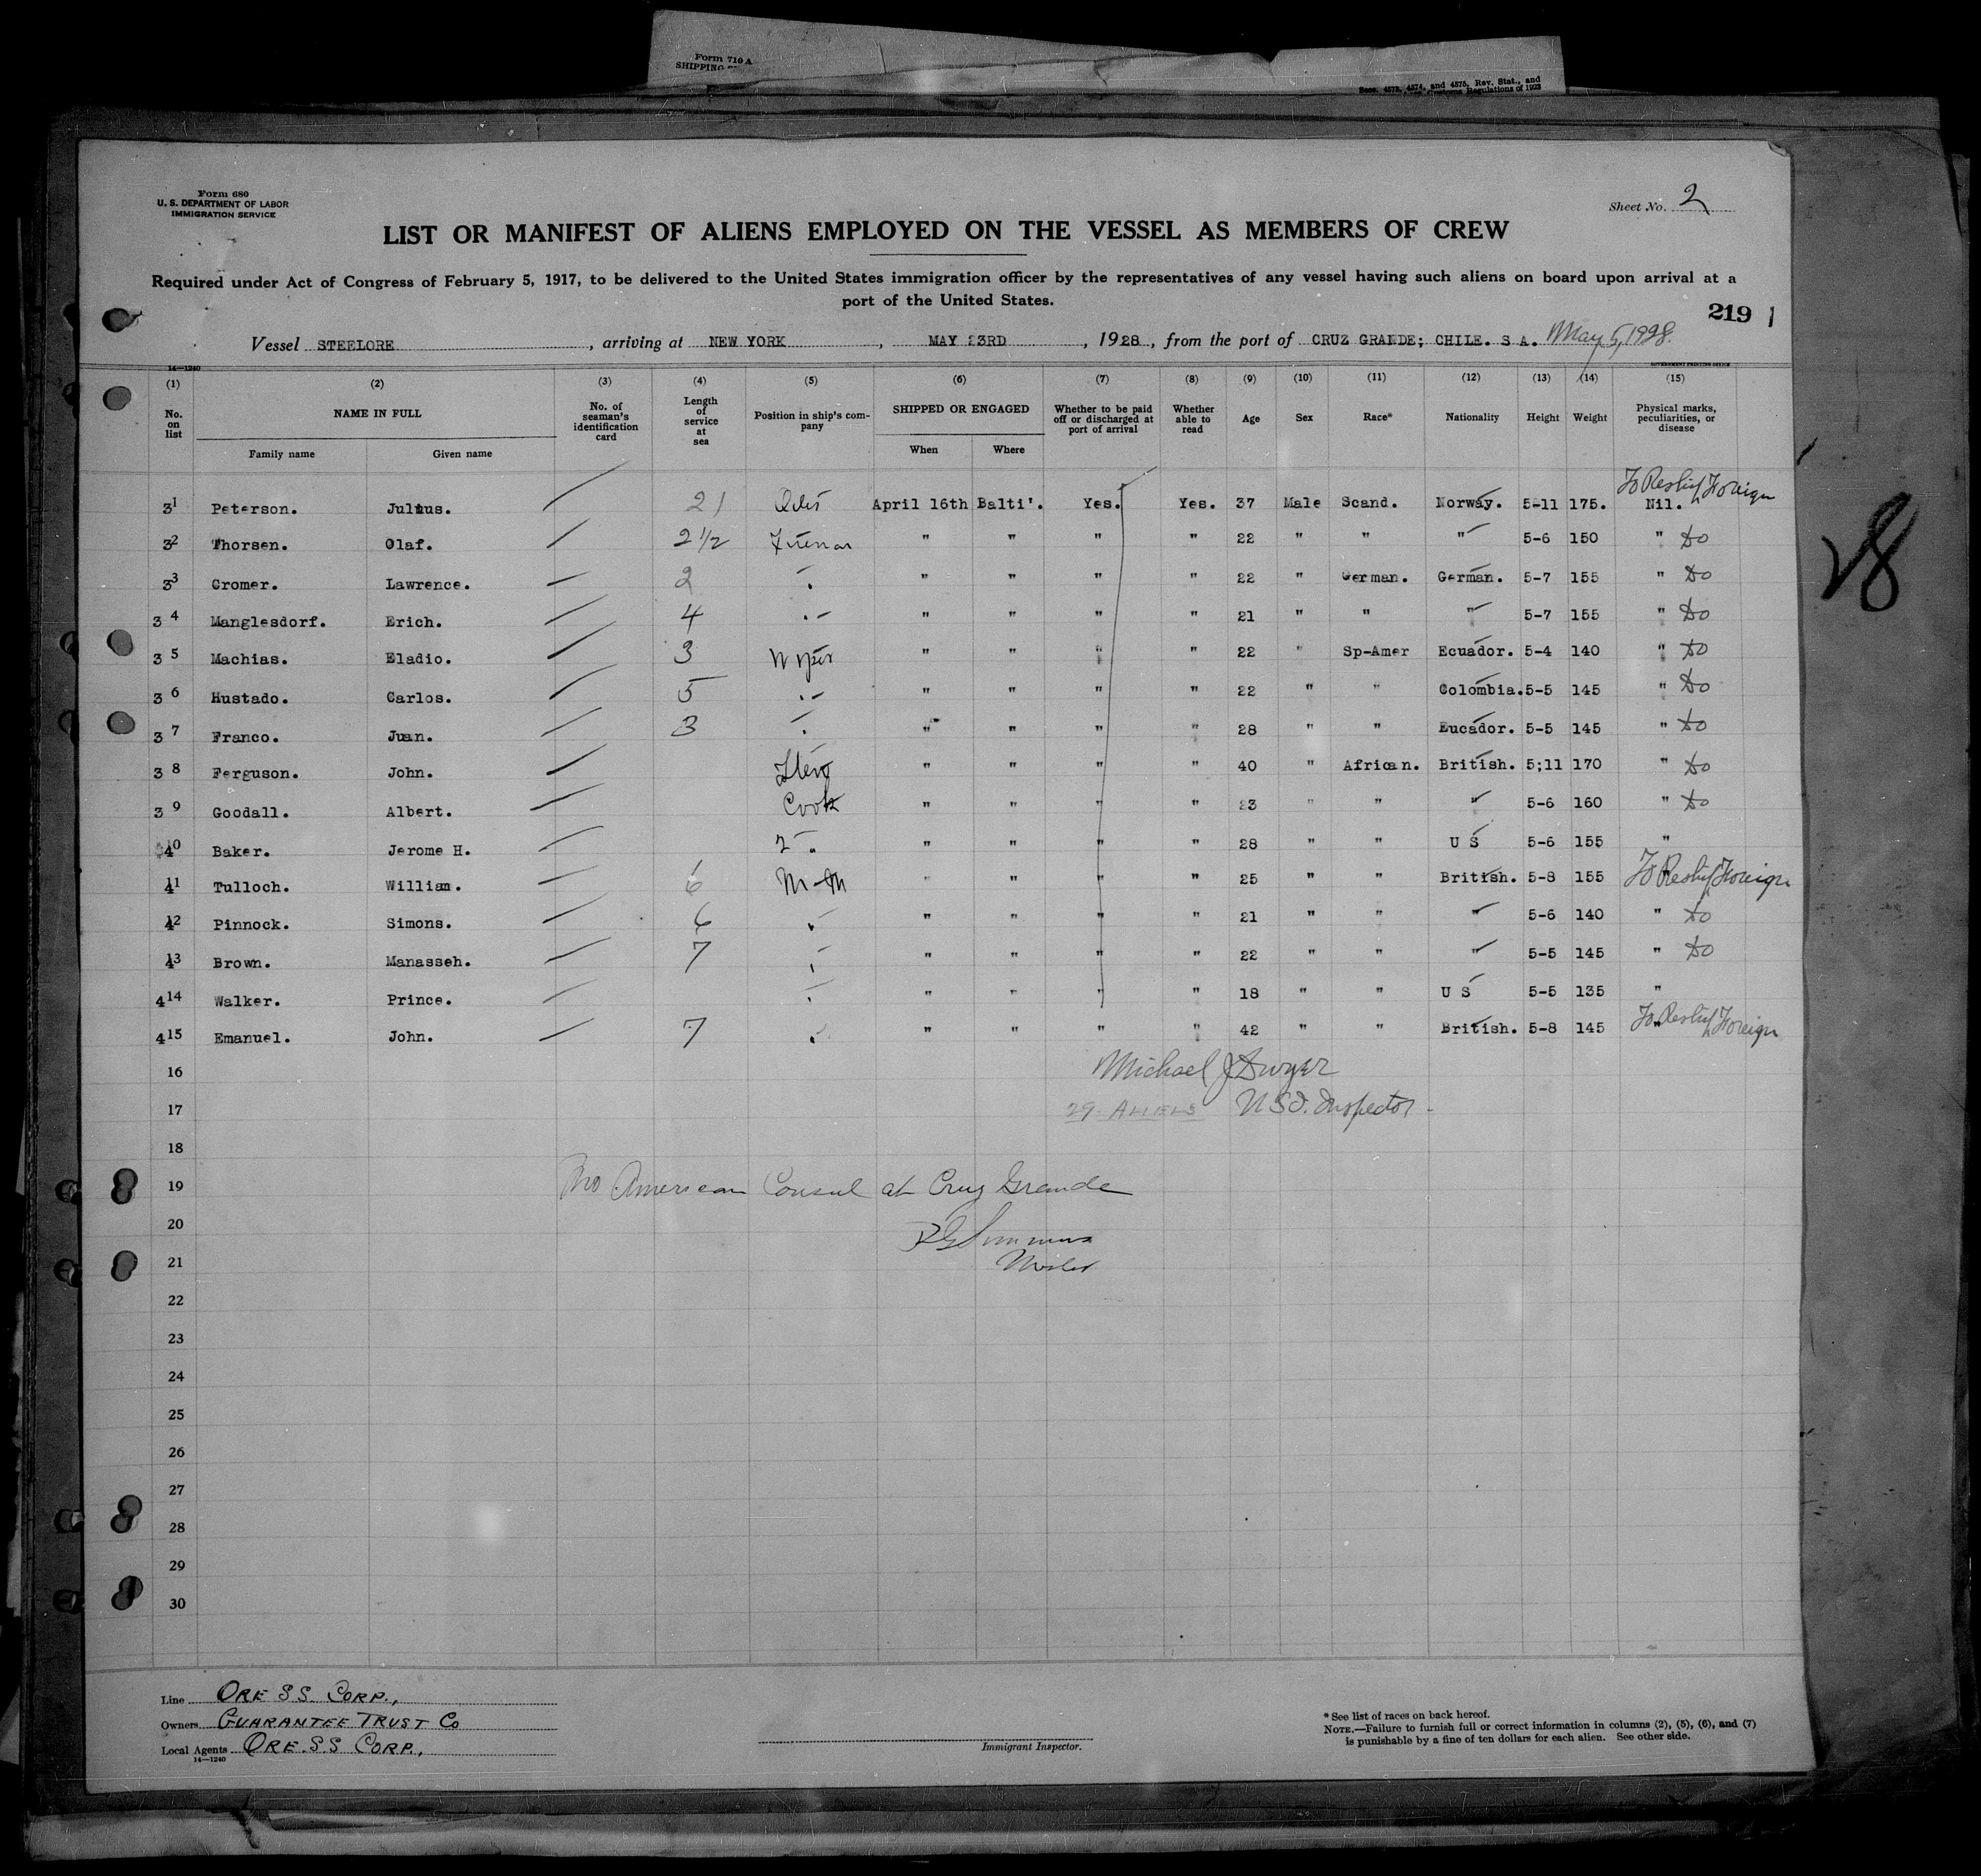 Form 710 A
SHIPPING
Secs. 4573, 4574, and 4575, Rev. Stat., and
Customs Regulations of 1923
Form 680
U. S. DEPARTMENT OF LABOR
IMMIGRATION SERVICE
Sheet No. 2
LIST OR MANIFEST OF ALIENS EMPLOYED ON THE VESSEL AS MEMBERS OF CREW
Required under Act of Congress of February 5, 1917, to be delivered to the United States immigration officer by the representatives of any vessel having such aliens on board upon arrival at a
port of the United States.
219 1
Vessel STEELORE, arriving at NEW YORK, MAY 23RD, 1928, from the port of CRUZ GRANDE; CHILE. S A. May 5, 1928.
14—1240 GOVERNMENT PRINTING OFFICE
(1) (2) (3) (4) (5) (6) (7) (8) (9) (10) (11) (12) (13) (14) (15)
No. on list NAME IN FULL No. of seaman's identification card Length of service at sea Position in ship's company SHIPPED OR ENGAGED Whether to be paid off or discharged at port of arrival Whether able to read Age Sex Race* Nationality Height Weight Physical marks, peculiarities, or disease
Family name Given name When Where
31 Peterson. Julius. 21 Oiler April 16th Balti'. Yes. Yes. 37 Male Scand. Norway. 5-11 175. Nil. To Reship Foreign
32 Thorsen. Olaf. 2 1/2 Fireman " " " " 22 " " " 5-6 150 " do
33 Cromer. Lawrence. 2 " " " " " 22 " German. German. 5-7 155 " do
34 Manglesdorf. Erich. 4 " " " " " 21 " " " 5-7 155 " do
35 Machias. Eladio. 3 Wiper " " " " 22 " Sp-Amer Ecuador. 5-4 140 " do
36 Hustado. Carlos. 5 " " " " " 22 " " Colombia. 5-5 145 " do
37 Franco. Juan. 3 " " " " " 28 " " Eucador. 5-5 145 " do
38 Ferguson. John. " " " " 40 " African. British. 5;11 170 " do
39 Goodall. Albert. Cook " " " " 23 " " " 5-6 160 " do
40 Baker. Jerome H. 2 " " " " " 28 " " U S 5-6 155 "
41 Tulloch. William. 6 M-M " " " " 25 " " British. 5-8 155 " To Reship Foreign
42 Pinnock. Simons. 6 " " " " " 21 " " " 5-6 140 " do
43 Brown. Manasseh. 7 " " " " " 22 " " " 5-5 145 " do
414 Walker. Prince. " " " " " 18 " " U S 5-5 135 "
415 Emanuel. John. 7 " " " " " 42 " " British. 5-8 145 " To Reship Foreign
28
16 Michael J Dwyer
17 29 ALIENS U.S.I. Inspector
18
19 No American Consul at Cruz Grande
20
21 Master
22
23
24
25
26
27
28
29
30
Line ORE S S. CORP.,
Owners GUARANTEE TRUST CO
Local Agents ORE. S S CORP.,
14—1240
Immigrant Inspector.
* See list of races on back hereof.
NOTE.—Failure to furnish full or correct information in columns (2), (5), (6), and (7)
is punishable by a fine of ten dollars for each alien. See other side.